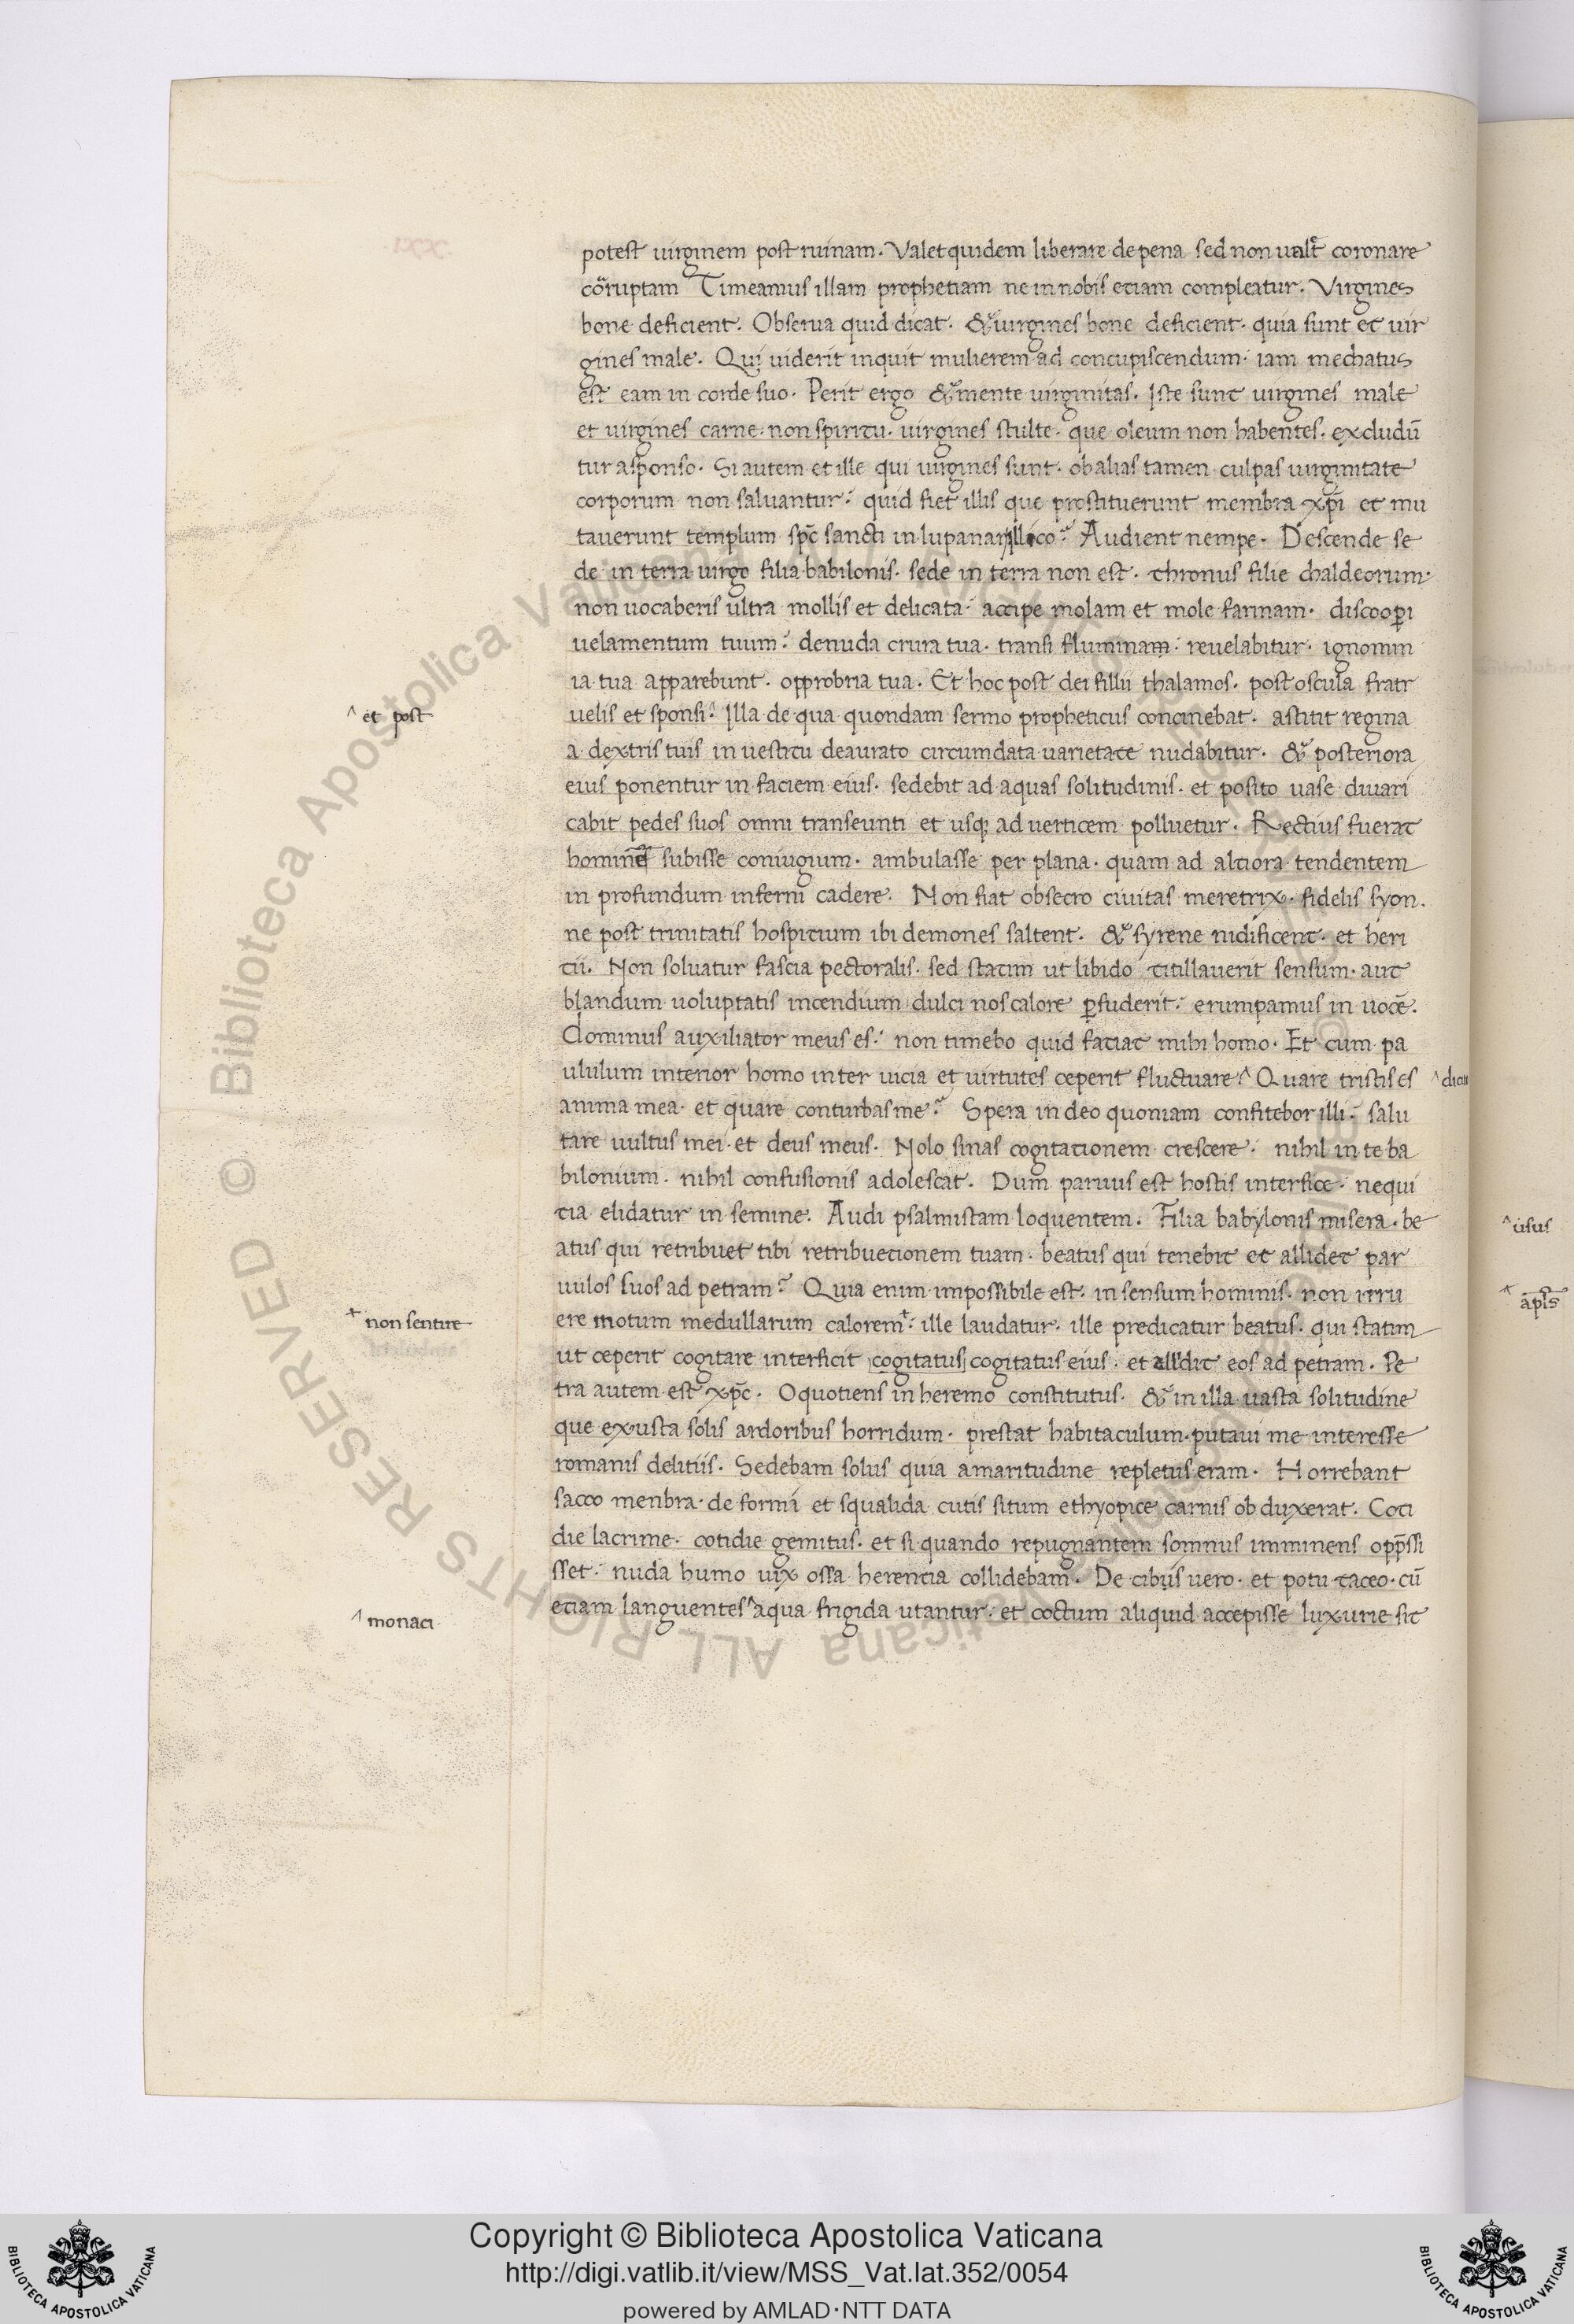 potest virginem post ruinam. Valet quidem liberare de pena sed non ualet coronare
corruptam Timeamus illam prophetiam ne in nobis etiam compleatur. Virgines
bone deficient. Obserua quid dicat. & uirgines bone deficient. quia sunt et uir
gines male. Qui viderit inquit mulierem ad concupiscendum. iam mechatus
est eam in corde suo. Perit ergo & mente virginitas. Iste sunt virgines male
et virgines carne. non spiritu. virgines stulte. que oleum non habentes. excludū
tur a sponso. Si autem et ille qui uirgines sunt. ob alias tamen culpas uirginitate
corporum non saluantur. quid fiet illis que prostituerunt membra xp̄i et mu
tauerunt templum sp̄c sancti in lupanar illico? Audient nempe. Descende se
de in terra uirgo filia babilonis. sede in terra non est. thronus filie chaldeorum.
non uocaberis ultra mollis et delicata. accipe molam et mole farinam. discoop̱i
uelamentum tuum. denuda crura tua. transi fluminam. reuelabitur. ignomin
ia tua apparebunt. opprobria tua. Et hoc post dei fillii thalamos. post oscula fratr
^ et post
uelis et sponsi. Illa de qua quondam sermo propheticus concinebat. astitit regina
a dextris tuis in uestitu deaurato circumdata uarietate nudabitur. & posteriora
eius ponentur in faciem eius. sedebit ad aquas solitudinis. et posito uase diuari
cabit pedes suos omni transeunti et usq; ad uerticem polluetur. Rectius fuerat
homine subisse coniugium. ambulasse per plana. quam ad altiora tendentem
in profundum inferni cadere. Non fiat obsecro ciuitas meretrix. fidelis syon.
ne post trinitatis hospitium ibi demones saltent. & syrene nidificent. et heri
tii. Non soluatur fascia pectoralis. sed statim ut libido titillauerit sensum. aut
blandum uoluptatis incendium dulci nos calore p̱fuderit. erumpamus in uocē.
Dominus auxiliator meus es. non timebo quid faciat mihi homo. Et cum pa
ululum interior homo inter uicia et uirtutes ceperit fluctuare^ Quare tristis es
anima mea. et quare conturbas me? Spera in deo quoniam confitebor illi. salu
tare uultus mei et deus meus. Nolo sinas cogitationem crescere. nihil in te ba
bilonium. nihil confusionis adolescat. Dum paruus est hostis interfice. nequi
tia elidatur in semine. Audi psalmistam loquentem. Filia babylonis misera. be
atus qui retribuet tibi retribuetionem tuam. beatus qui tenebit et allidet par
uulos suos ad petram? Quia enim impossibile est. in sensum hominis. non irru
ere motum medullarum calorem+. ille laudatur. ille predicatur beatus. qui statim
+ non sentire
ut ceperit cogitare interficit cogitatus cogitatus eius. et allidit eos ad petram. Pe
tra autem est xp̄c. O quotiens in heremo constitutus. & in illa uasta solitudine
que exusta solis ardoribus horridum. prestat habitaculum. putaui me interesse
romanis delitiis. Sedebam solus quia amaritudine repletus eram. Horrebant
sacco menbra deformi et squalida cutis situm ethyopice carnis obduxerat. Coti
die lacrime. cotidie gemitus. et si quando repugnantem somnus imminens opp̄ssi
sset. nuda humo uix ossa herentia collidebam. De cibis uero. et potu taceo. cū
etiam languentes^ aqua frigida utantur. et coctum aliquid accepisse luxurie sit
^ monaci
^ usus
ap̄ls
© Biblioteca Apostolica Vaticana ALL RIGHTS RESERVED
Copyright © Biblioteca Apostolica Vaticana
http://digi.vatlib.it/view/MSS_Vat.lat.352/0054
powered by AMLAD·NTT DATA
BIBLIOTECA APOSTOLICA VATICANA
BIBLIOTECA APOSTOLICA VATICANA